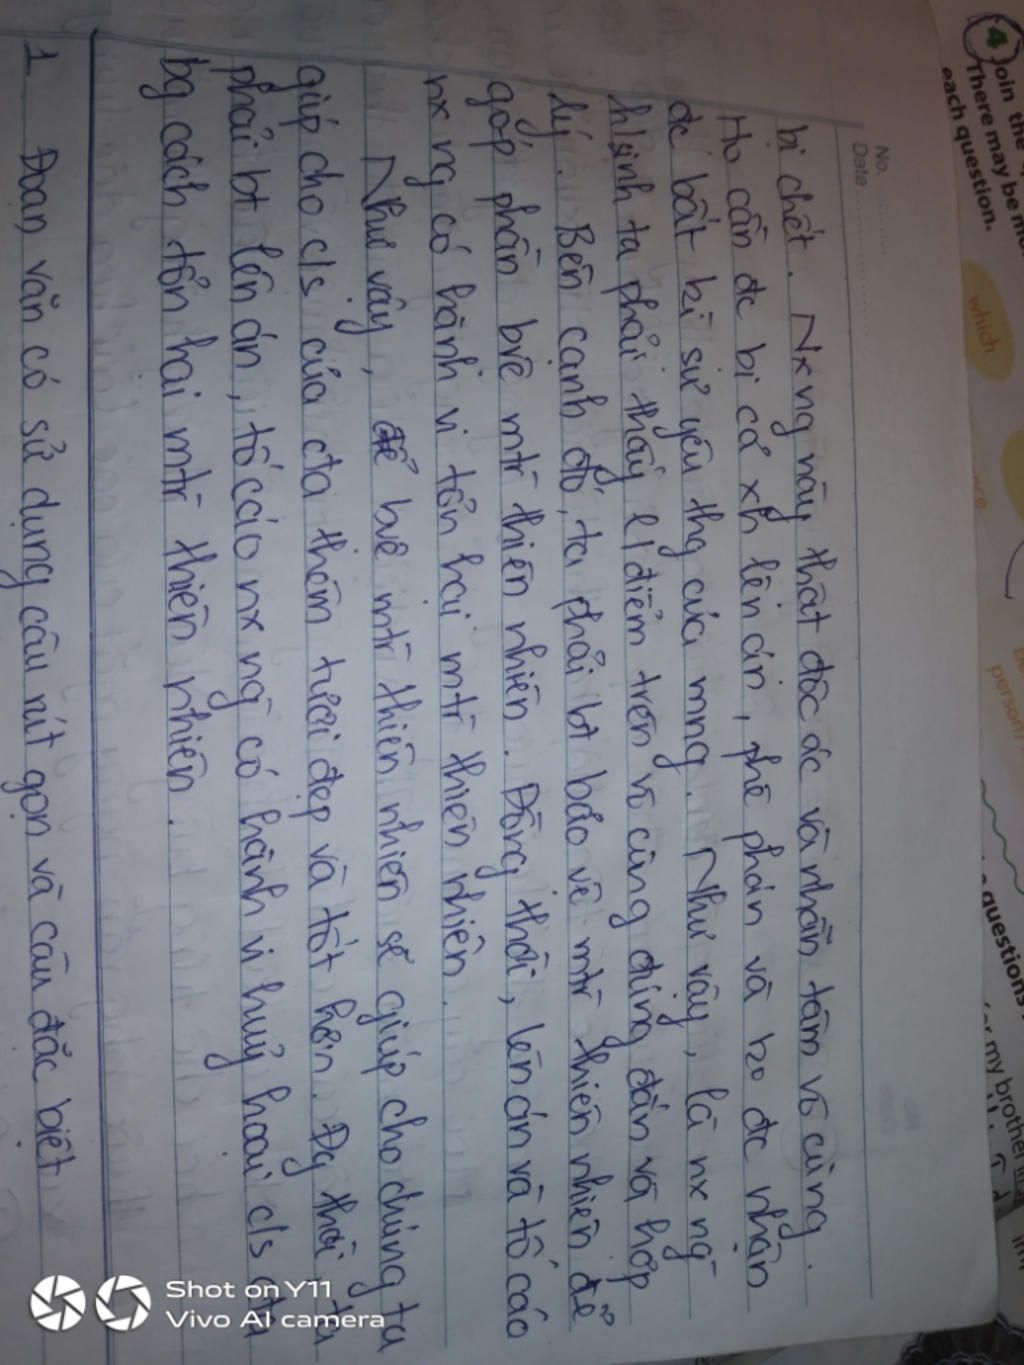 No.
Date
bị chết. Nx ng này thật độc ác và nhẫn tâm vô cùng.
Họ cần đc bị cả xh lên án, phê phán và ko đc nhận
đc bất kì sự yêu thg của mng. Như vậy, là nx ng
h/sinh ta phải thấy q/điểm trên vô cùng đúng đắn và hợp
lý. Bên cạnh đó, ta phải bt bảo vệ mtr thiên nhiên để
góp phần bvệ mtr thiên nhiên. Đồng thời, lên án và tố cáo
nx ng có hành vi tổn hại mtr thiên nhiên.
Như vậy, để bvệ mtr thiên nhiên sẽ giúp cho chúng ta
giúp cho c/s của cta thêm tươi đẹp và tốt hơn. Đg thời ta
phải bt lên án, tố cáo nx ng có hành vi huỷ hoại c/s cta
bg cách tổn hại mtr thiên nhiên.
1 Đoạn văn có sử dụng câu rút gọn và câu đặc biệt
4 Join the
There may be
each question.
which
person/
questions
my brother
Shot on Y11
Vivo AI camera